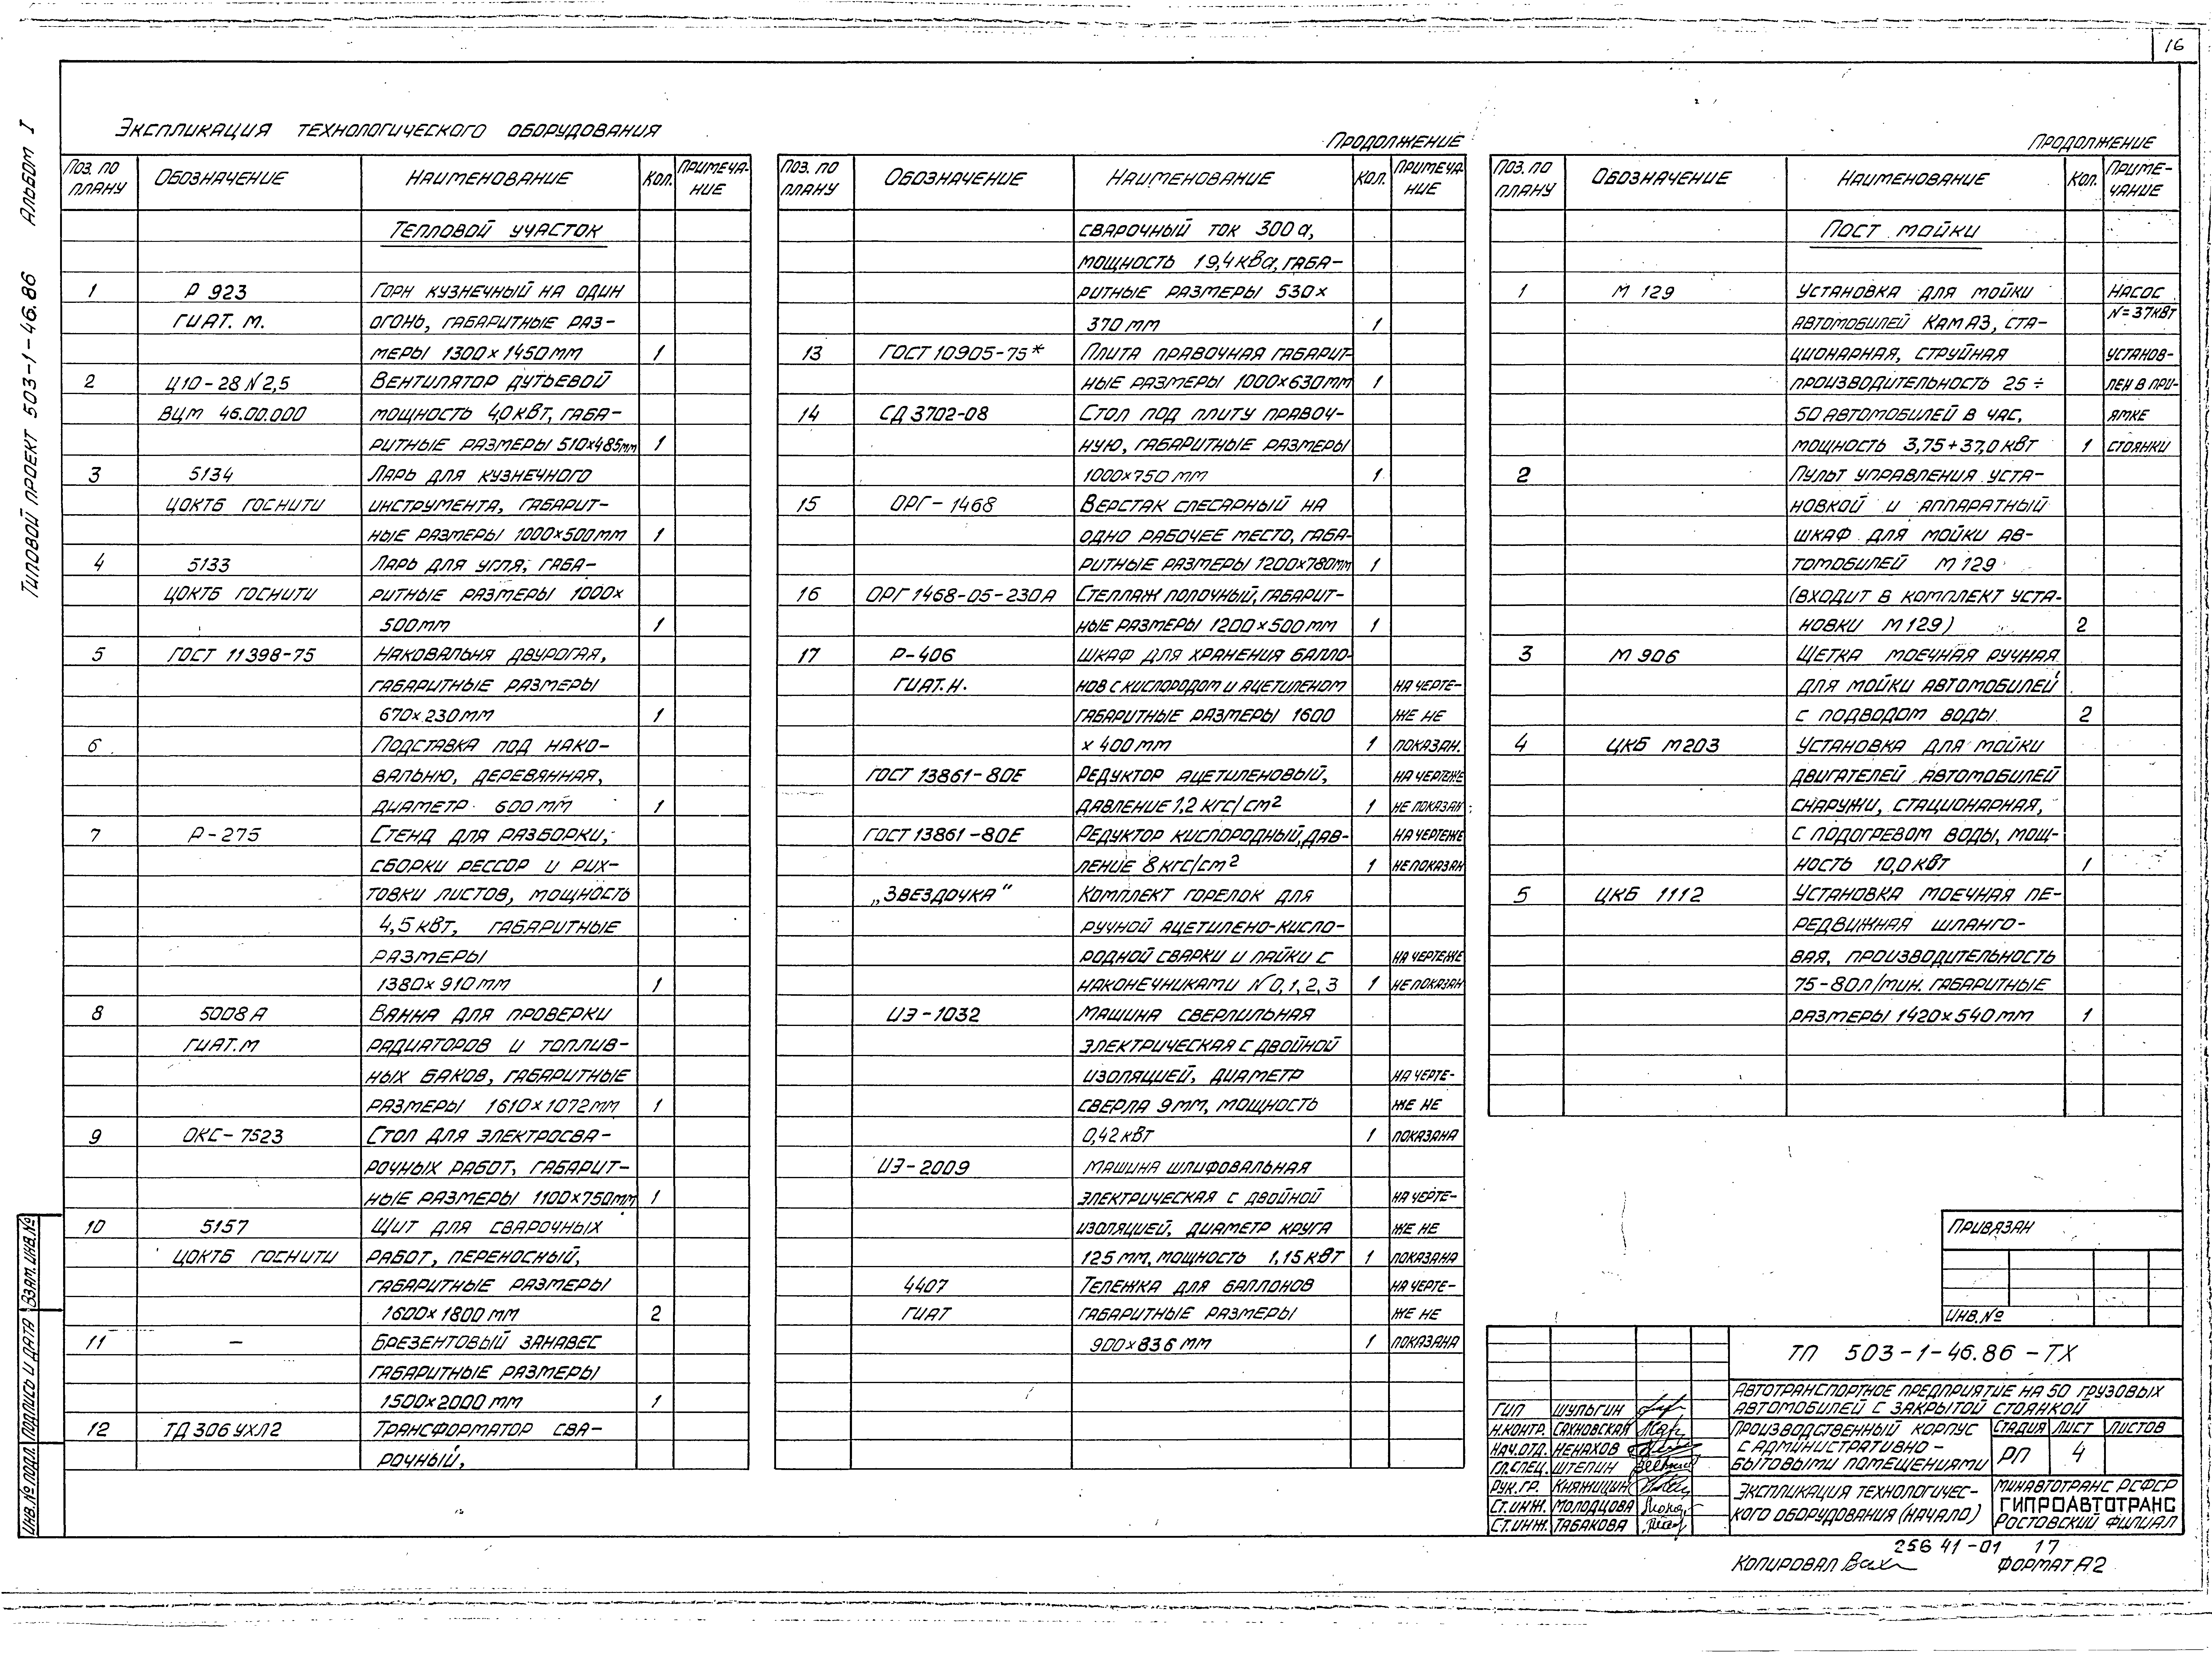 16
Типовой проект 503-1-46.86 Альбом I
Экспликация технологического оборудования
Поз. по плану Обозначение Наименование Кол. Примечание
Тепловой участок
1 Р 923 Горн кузнечный на один
ГИАТ. М. огонь, габаритные раз-
меры 1300×1450мм 1
2 Ц10-28 №2,5 Вентилятор дутьевой
ВЦМ 46.00.000 мощность 4,0кВт, габа-
ритные размеры 510×485мм 1
3 5134 Ларь для кузнечного
ЦОКТБ ГОСНИТИ инструмента, габарит-
ные размеры 1000×500мм 1
4 5133 Ларь для угля, габа-
ЦОКТБ ГОСНИТИ ритные размеры 1000×
500мм 1
5 ГОСТ 11398-75 Наковальня двурогая,
габаритные размеры
670×230мм 1
6 Подставка под нако-
вальню, деревянная,
диаметр 600мм 1
7 Р-275 Стенд для разборки,
сборки рессор и рих-
товки листов, мощность
4,5кВт, габаритные
размеры
1380×910мм 1
8 5008А Ванна для проверки
ГИАТ.М радиаторов и топлив-
ных баков, габаритные
размеры 1610×1072мм 1
9 ОКС-7523 Стол для электросва-
рочных работ, габарит-
ные размеры 1100×750мм 1
10 5157 Щит для сварочных
ЦОКТБ ГОСНИТИ работ, переносный,
габаритные размеры
1600×1800мм 2
11 — Брезентовый занавес
габаритные размеры
1500×2000мм 1
12 ТД306УХЛ2 Трансформатор сва-
рочный,
Продолжение
Поз. по плану Обозначение Наименование Кол. Примечание
сварочный ток 300а,
мощность 19,4кВа, габа-
ритные размеры 530×
370мм 1
13 ГОСТ 10905-75* Плита правочная габарит-
ные размеры 1000×630мм 1
14 СД3702-08 Стол под плиту правоч-
ную, габаритные размеры
1000×750мм 1
15 ОРГ-1468 Верстак слесарный на
одно рабочее место, габа-
ритные размеры 1200×780мм 1
16 ОРГ1468-05-230А Стеллаж полочный, габарит-
ные размеры 1200×500мм 1
17 Р-406 Шкаф для хранения балло-
ГИАТ.Н. нов с кислородом и ацетиленом на черте-
габаритные размеры 1600 же не
×400мм 1 показан.
ГОСТ 13861-80Е Редуктор ацетиленовый, на чертеже
давление 1,2 кгс/см² 1 не показан
ГОСТ 13861-80Е Редуктор кислородный, дав- на чертеже
ление 8кгс/см² 1 не показан
„Звездочка“ Комплект горелок для
ручной ацетилено-кисло-
родной сварки и пайки с на чертеже
наконечниками №0,1,2,3 1 не показан
ИЭ-1032 Машина сверлильная
электрическая с двойной
изоляцией, диаметр на черте-
сверла 9мм, мощность же не
0,42кВт 1 показана
ИЭ-2009 Машина шлифовальная
электрическая с двойной на черте-
изоляцией, диаметр круга же не
125мм, мощность 1,15кВт 1 показана
4407 Тележка для баллонов на черте-
ГИАТ габаритные размеры же не
900×836мм 1 показана
Продолжение
Поз. по плану Обозначение Наименование Кол. Примечание
Пост мойки
1 М 129 Установка для мойки насос
автомобилей КамАЗ, ста- N=37кВт
ционарная, струйная установ-
производительность 25÷ лен в при-
50 автомобилей в час, ямке
мощность 3,75+37,0кВт 1 стоянки
2 Пульт управления уста-
новкой и аппаратный
шкаф для мойки ав-
томобилей М129
(входит в комплект уста-
новки М129) 2
3 М 906 Щетка моечная ручная
для мойки автомобилей
с подводом воды 2
4 ЦКБ М203 Установка для мойки
двигателей автомобилей
снаружи, стационарная,
с подогревом воды, мощ-
ность 10,0кВт 1
5 ЦКБ 1112 Установка моечная пе-
редвижная шланго-
вая, производительность
75-80л/мин. габаритные
размеры 1420×540мм 1
Привязан
Инв.№
ТП 503-1-46.86-ТХ
Автотранспортное предприятие на 50 грузовых
автомобилей с закрытой стоянкой
ГИП Шульгин
Н.контр. Сахновская
Нач.отд. Ненахов
Гл.спец. Штепин
Рук.гр. Княжицин
Ст.инж. Молодцова
Ст.инж. Табакова
Производственный корпус
с административно-
бытовыми помещениями
Стадия Лист Листов
РП 4
Экспликация технологичес-
кого оборудования (начало)
Минавтотранс РСФСР
ГИПРОАВТОТРАНС
Ростовский филиал
25641-01 17
Копировал
Формат А2
Инв.№ подл. Подпись и дата Взам.инв.№